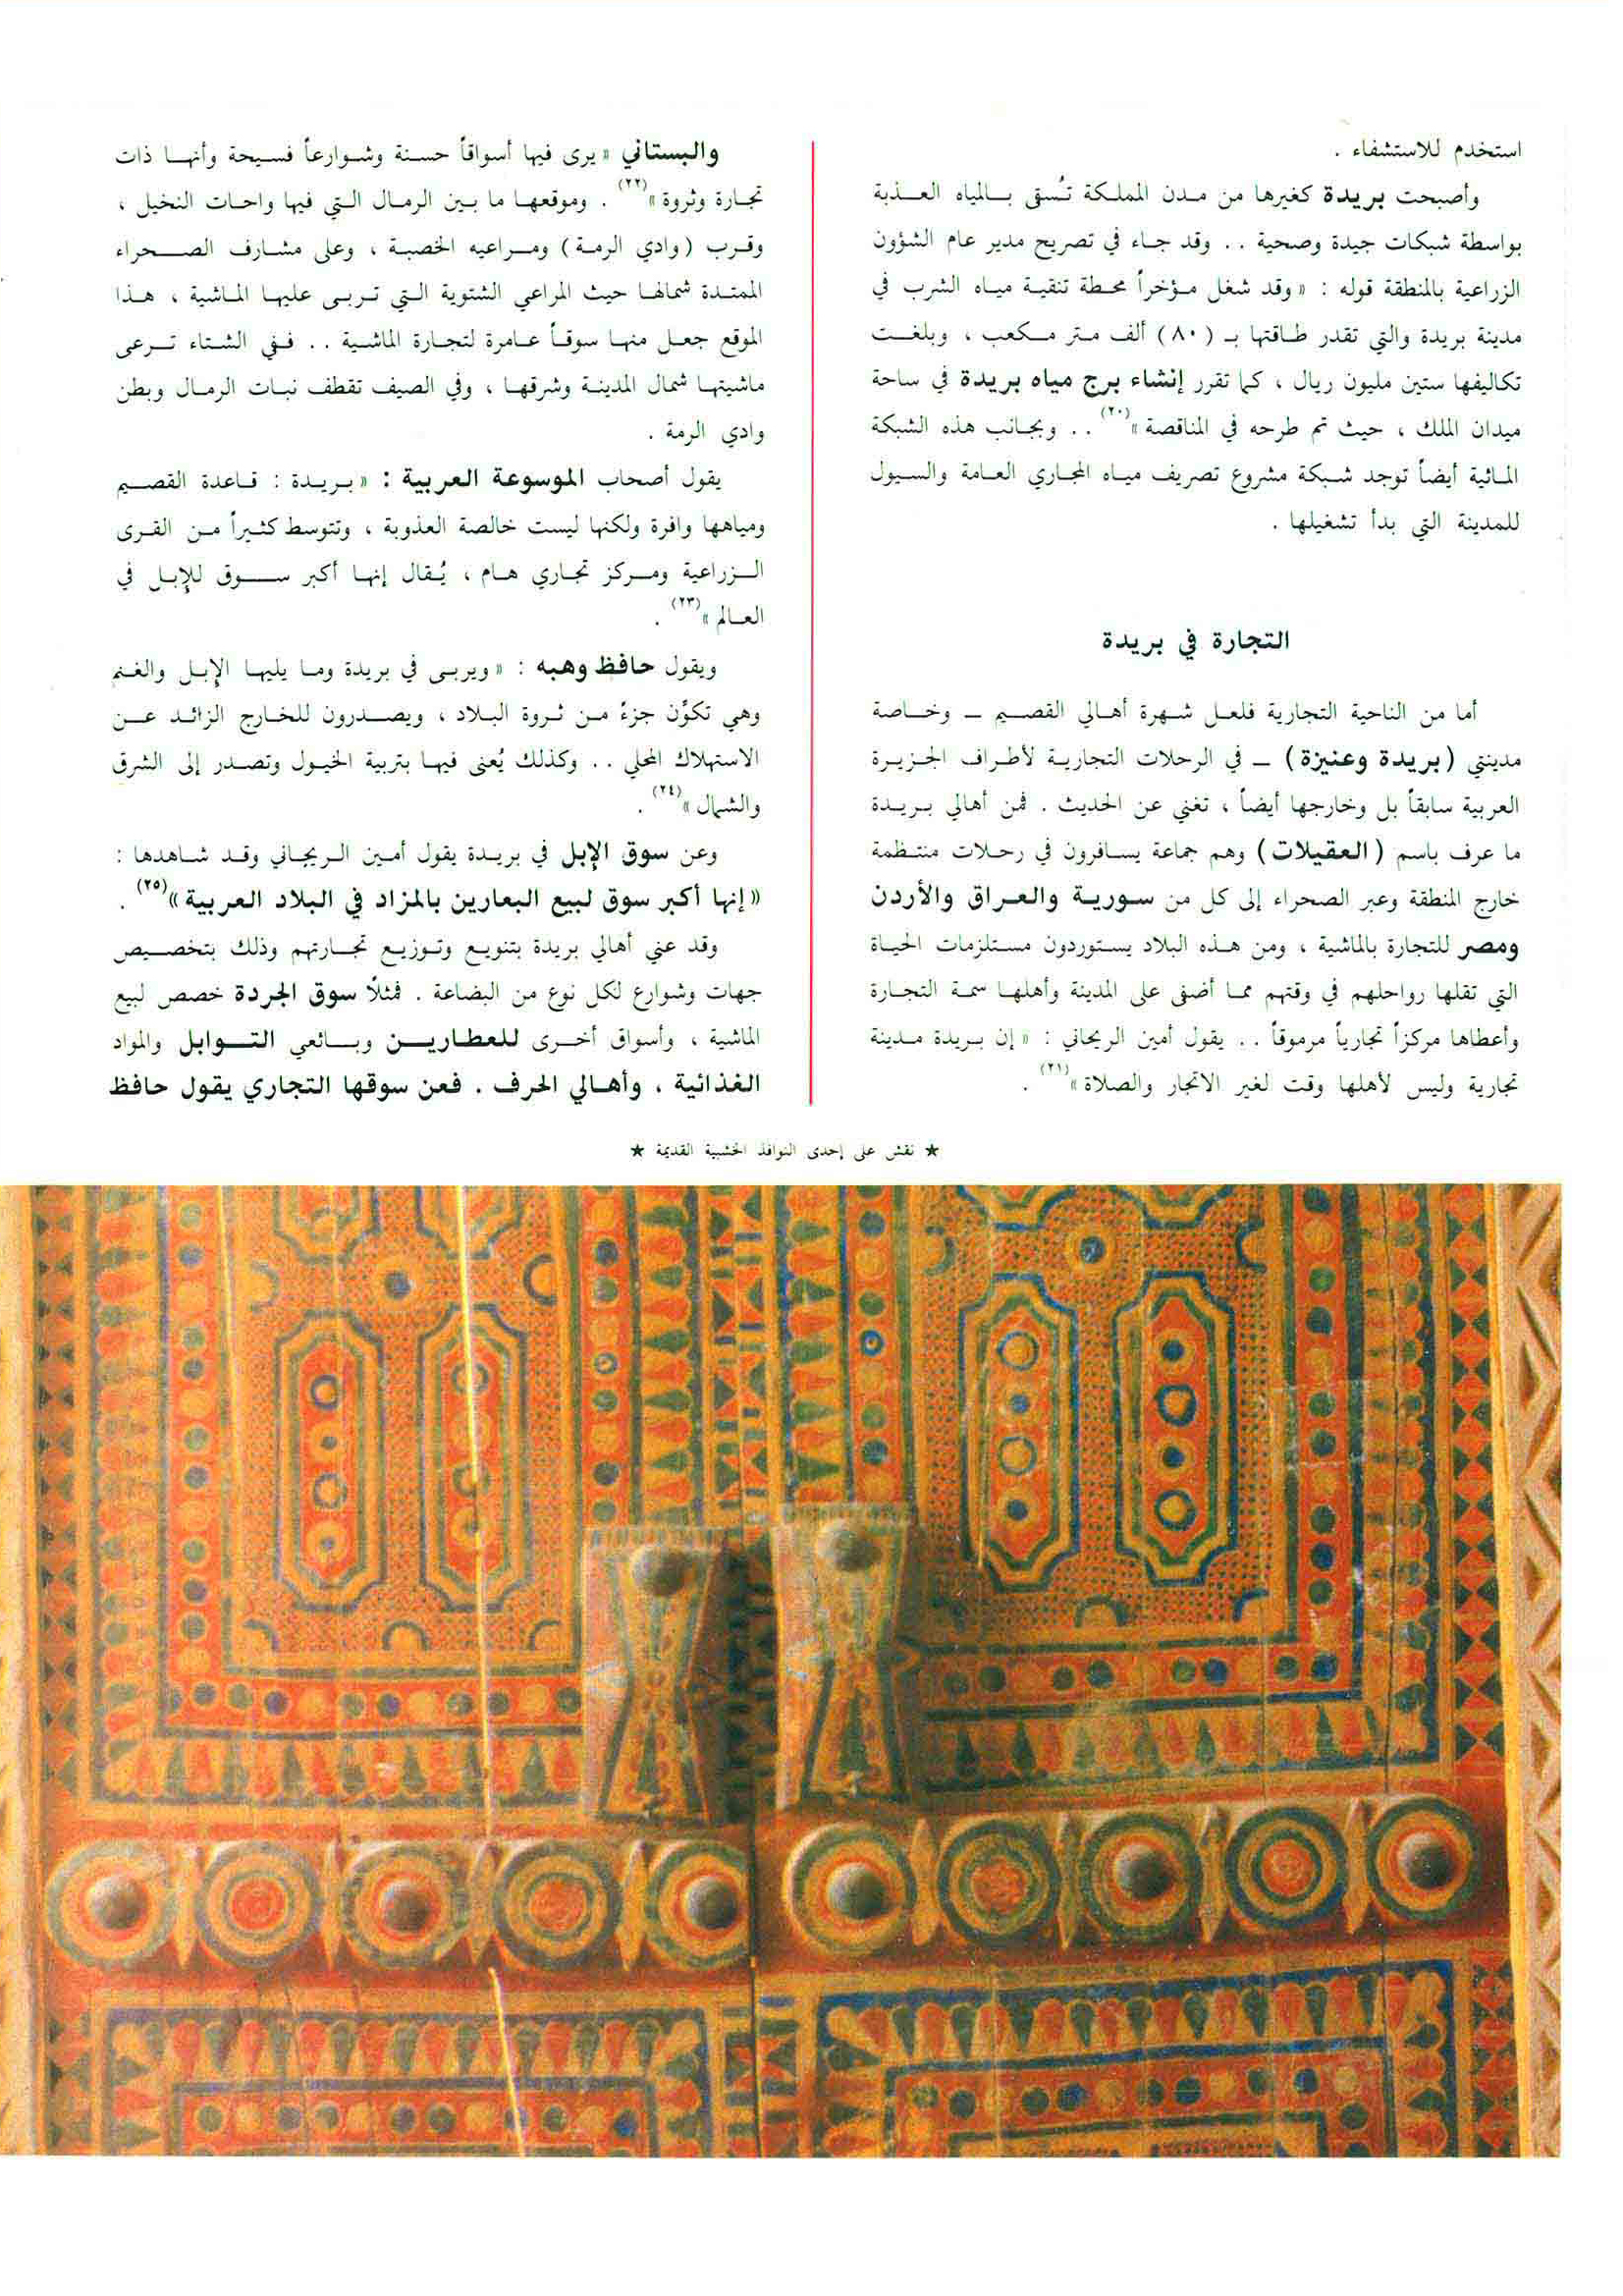 استخدم للاستشفاء .
وأصبحت بريدة كغيرها من مدن المملكة تُسق بالمياه العذبة
بواسطة شبكات جيدة وصحية .. وقد جاء في تصريح مدير عام الشؤون
الزراعية بالمنطقة قوله : « وقد شغل مؤخراً محطة تنقية مياه الشرب في
مدينة بريدة والتي تقدر طاقتها بـ (٨٠) ألف متر مكعب ، وبلغت
تكاليفها ستين مليون ريال ، كما تقرر إنشاء برج مياه بريدة في ساحة
ميدان الملك ، حيث تم طرحه في المناقصة »(٢٠) .. وبجانب هذه الشبكة
المائية أيضاً توجد شبكة مشروع تصريف مياه المجاري العامة والسيول
للمدينة التي بدأ تشغيلها .
التجارة في بريدة
أما من الناحية التجارية فلعل شهرة أهالي القصيم ــ وخاصة
مدينتي (بريدة وعنيزة) ــ في الرحلات التجارية لأطراف الجزيرة
العربية سابقاً بل وخارجها أيضاً ، تغني عن الحديث . فمن أهالي بريدة
ما عرف باسم (العقيلات) وهم جماعة يسافرون في رحلات منتظمة
خارج المنطقة وعبر الصحراء إلى كل من سورية والعراق والأردن
ومصر للتجارة بالماشية ، ومن هذه البلاد يستوردون مستلزمات الحياة
التي تقلها رواحلهم في وقتهم مما أضفى على المدينة وأهلها سمة التجارة
وأعطاها مركزاً تجارياً مرموقاً .. يقول أمين الريحاني : « إن بريدة مدينة
تجارية وليس لأهلها وقت لغير الاتجار والصلاة »(٢١) .
والبستاني « يرى فيها أسواقاً حسنة وشوارعاً فسيحة وأنها ذات
تجارة وثروة »(٢٢) . وموقعها ما بين الرمال التي فيها واحات النخيل ،
وقرب (وادي الرمة) ومراعيه الخصبة ، وعلى مشارف الصحراء
الممتدة شمالها حيث المراعي الشتوية التي تربى عليها الماشية ، هذا
الموقع جعل منها سوقاً عامرة لتجارة الماشية .. ففي الشتاء ترعى
ماشيتها شمال المدينة وشرقها ، وفي الصيف تقطف نبات الرمال وبطن
وادي الرمة .
يقول أصحاب الموسوعة العربية : « بريدة : قاعدة القصيم
ومياهها وافرة ولكنها ليست خالصة العذوبة ، وتتوسط كثيراً من القرى
الزراعية ومركز تجاري هام ، يُقال إنها أكبر سوق للإبل في
العالم »(٢٣) .
ويقول حافظ وهبه : « ويربى في بريدة وما يليها الإبل والغنم
وهي تكوّن جزءً من ثروة البلاد ، ويصدرون للخارج الزائد عن
الاستهلاك المحلي .. وكذلك يُعنى فيها بتربية الخيول وتصدر إلى الشرق
والشمال »(٢٤) .
وعن سوق الإبل في بريدة يقول أمين الريحاني وقد شاهدها :
« إنها أكبر سوق لبيع البعارين بالمزاد في البلاد العربية »(٢٥) .
وقد عني أهالي بريدة بتنويع وتوزيع تجارتهم وذلك بتخصيص
جهات وشوارع لكل نوع من البضاعة . فمثلاً سوق الجردة خصص لبيع
الماشية ، وأسواق أخرى للعطارين وبائعي التوابل والمواد
الغذائية ، وأهالي الحرف . فعن سوقها التجاري يقول حافظ
★ نقش على إحدى النوافذ الخشبية القديمة ★